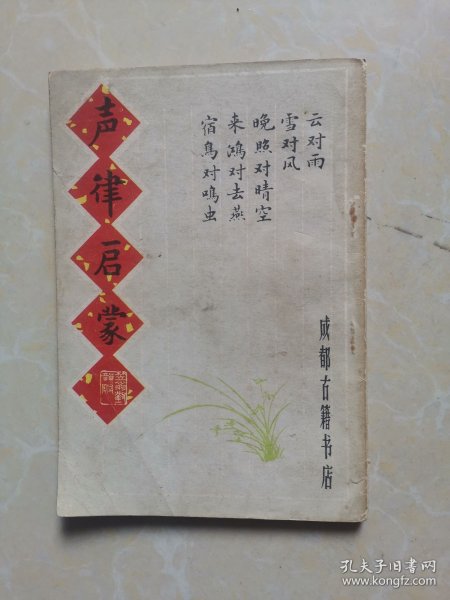 声律启蒙
云对雨
雪对风
晚照对晴空
来鸿对去燕
宿鸟对鸣虫
成都古籍书店
孔夫子旧书网
www.kongfz.com